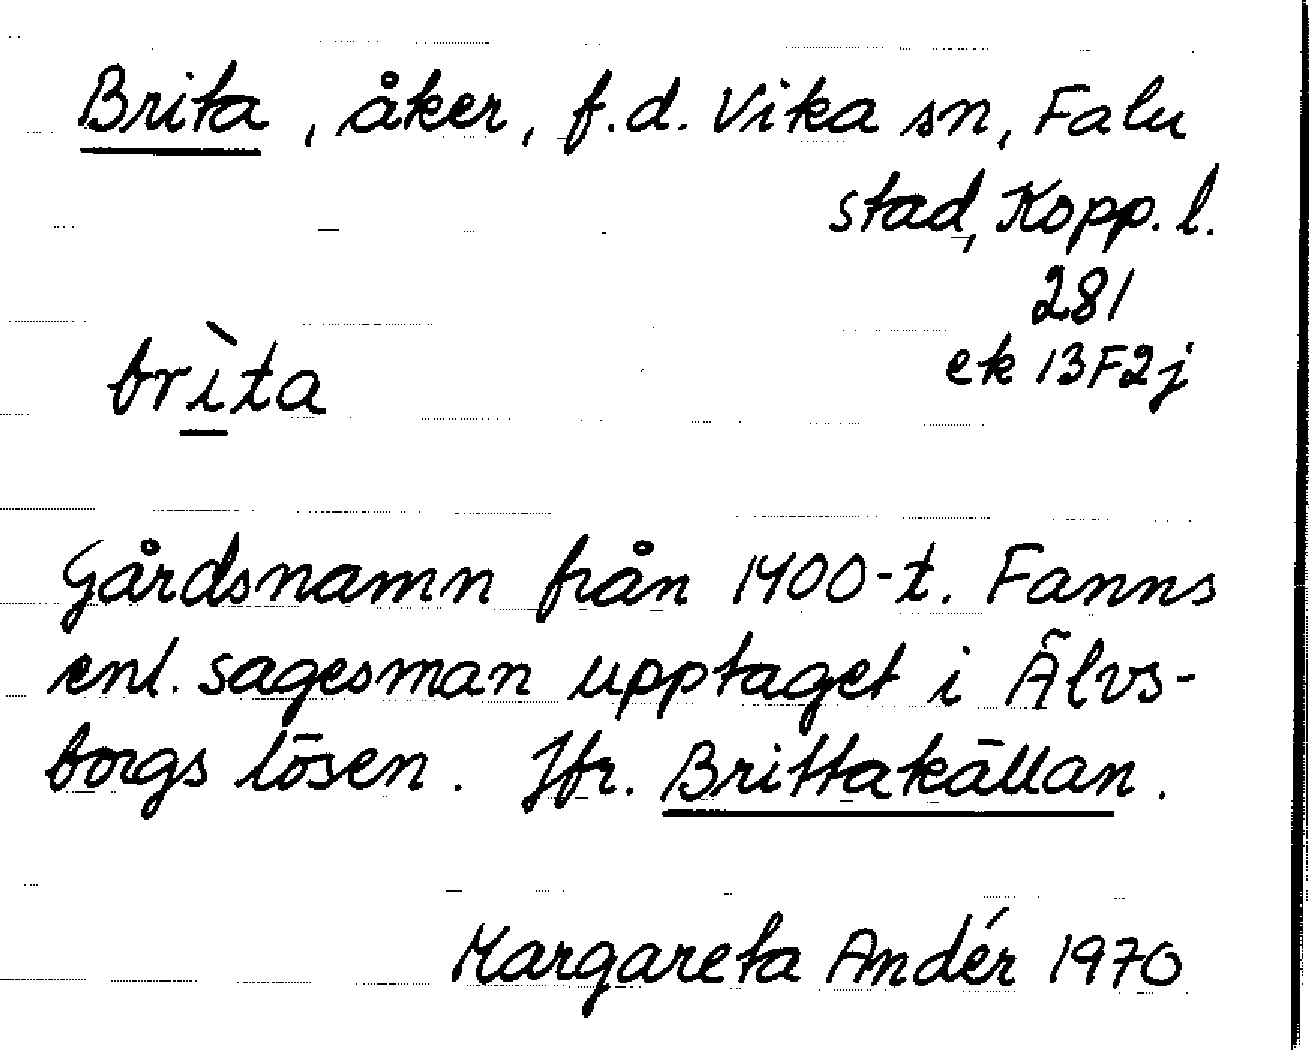 Brita, åker, f.d. Vika sn, Falu
stad, Kopp. l.
281
ek 13F2j
brìta
Gårdsnamn från 1400-t. Fanns
enl. sagesman upptaget i Älvs-
borgs lösen. Jfr. Brittakällan.
Margareta Andér 1970